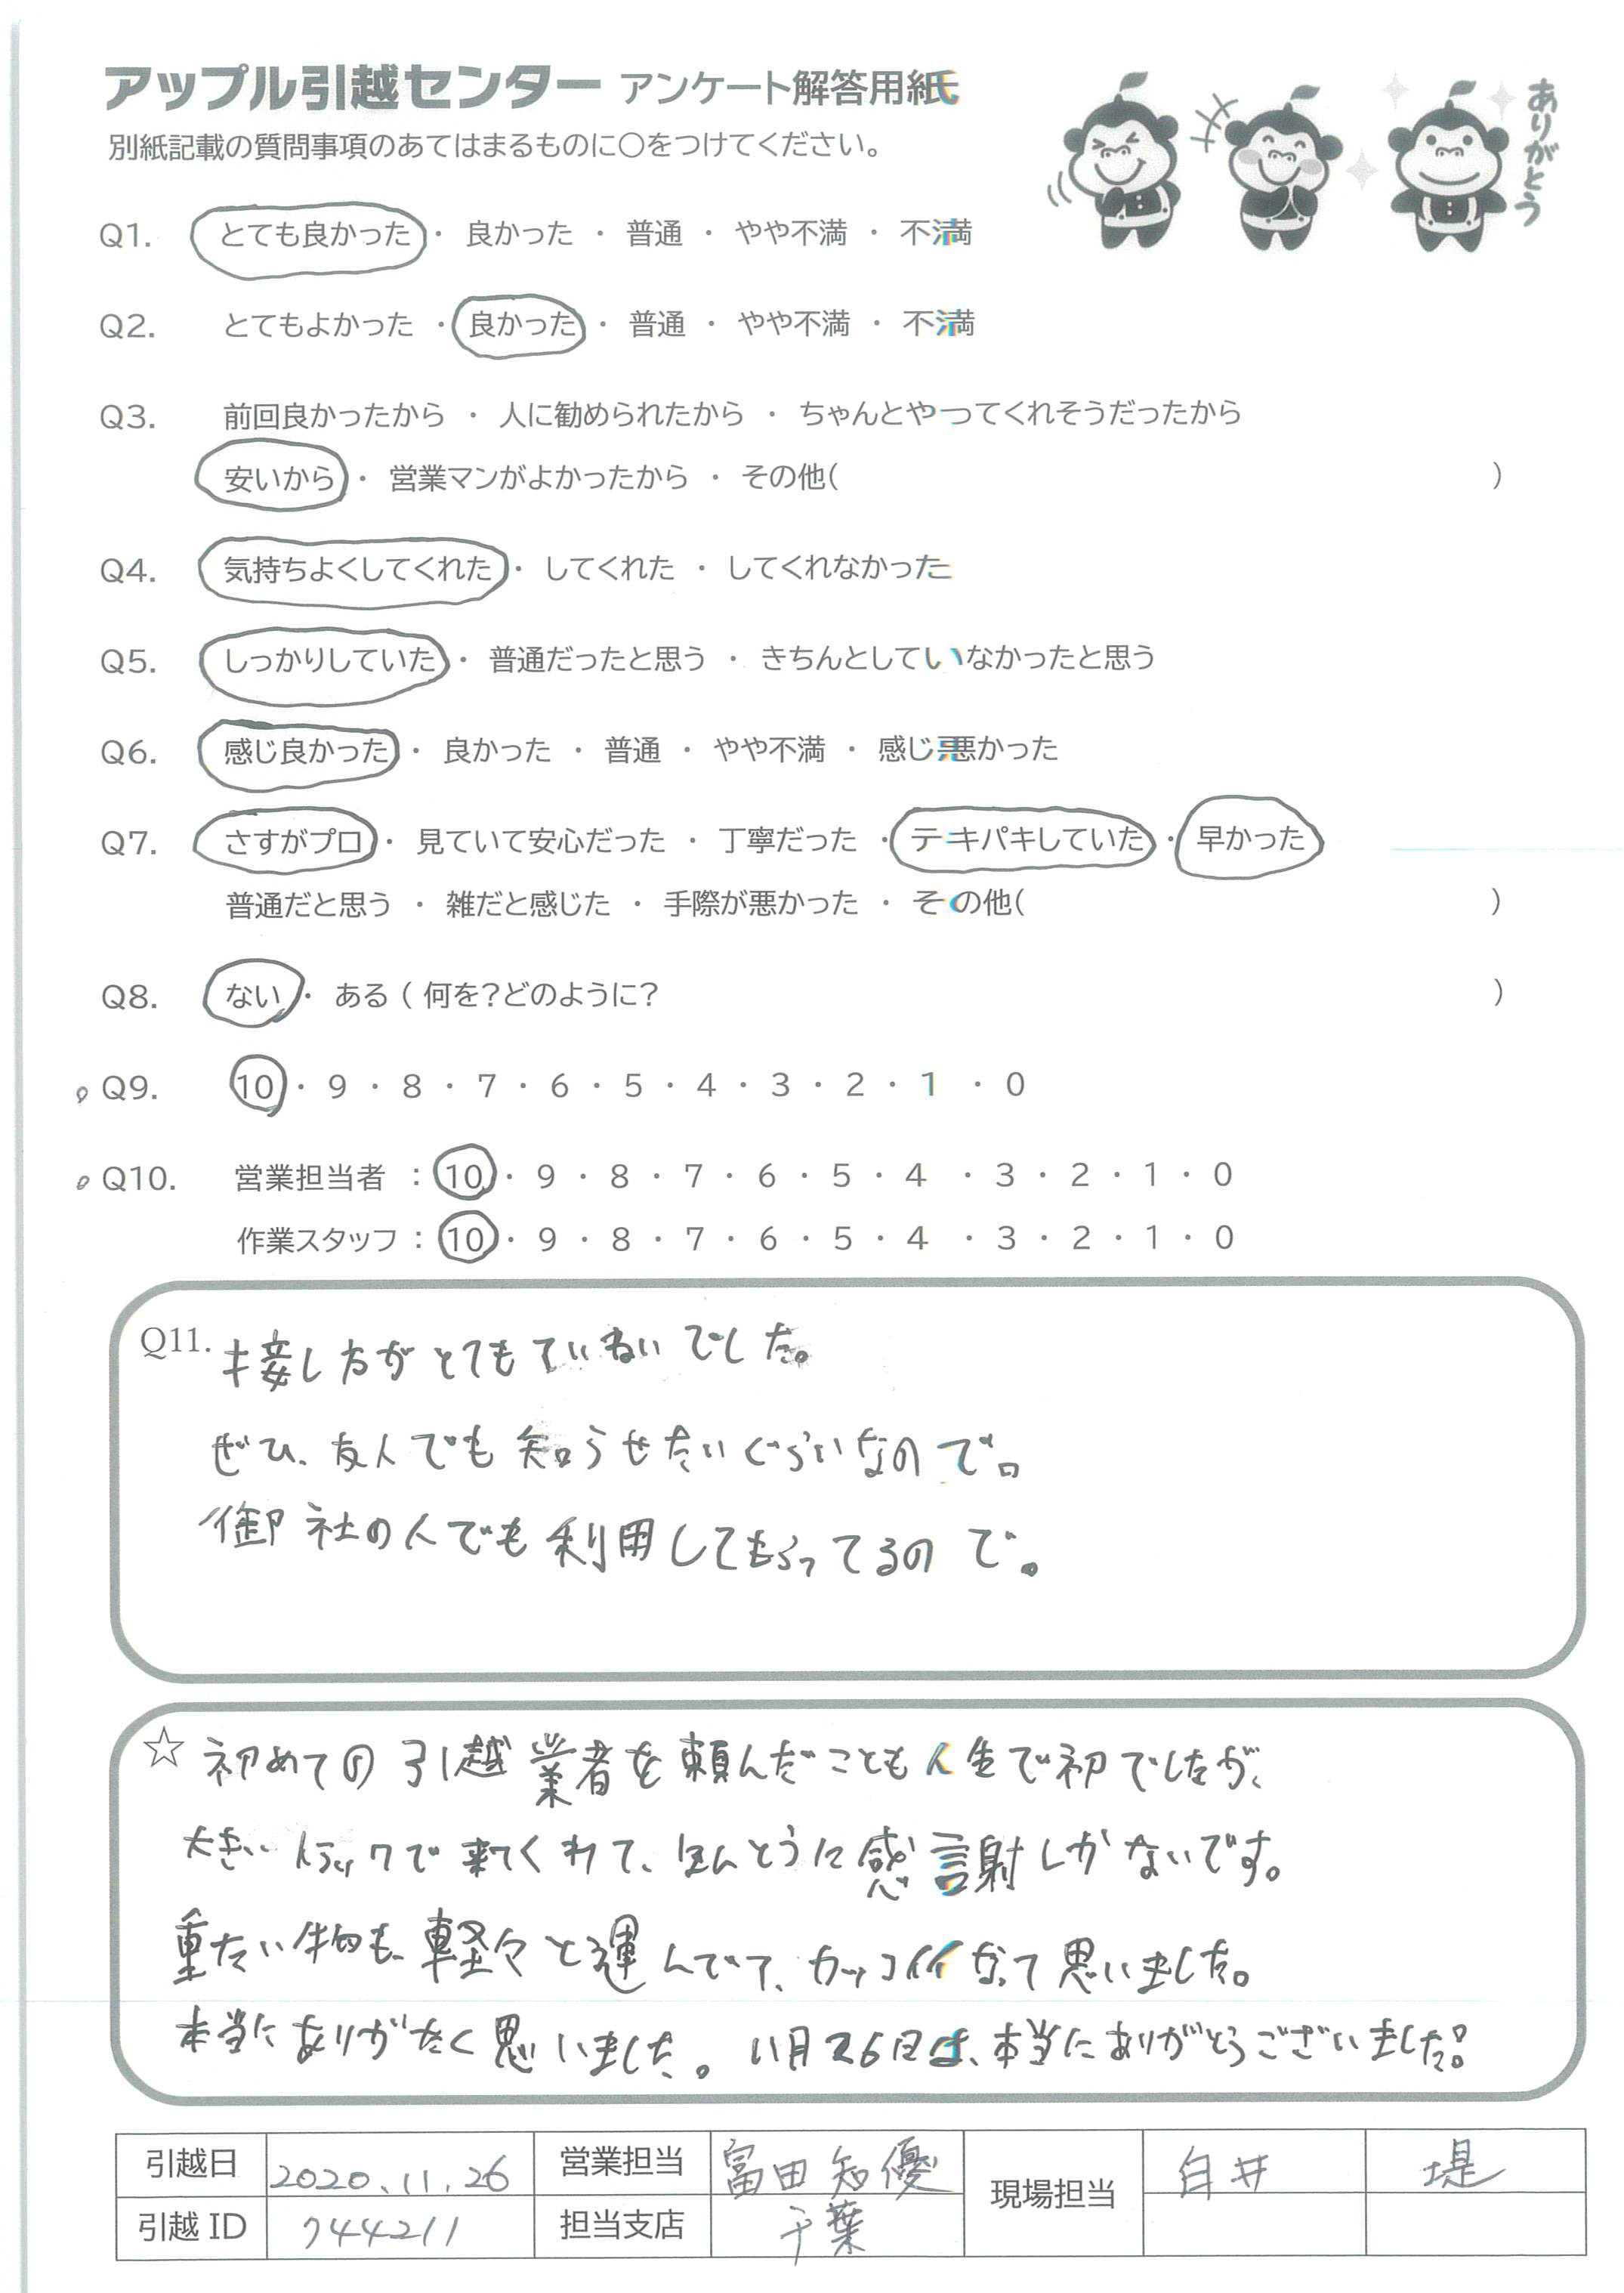 アップル引越センター アンケート解答用紙
ありがとう
別紙記載の質問事項のあてはまるものに○をつけてください。
Q1. とても良かった ・ 良かった ・ 普通 ・ やや不満 ・ 不満
Q2. とてもよかった ・ 良かった ・ 普通 ・ やや不満 ・ 不満
Q3. 前回良かったから ・ 人に勧められたから ・ ちゃんとやってくれそうだったから
安いから ・ 営業マンがよかったから ・ その他( )
Q4. 気持ちよくしてくれた ・ してくれた ・ してくれなかった
Q5. しっかりしていた ・ 普通だったと思う ・ きちんとしていなかったと思う
Q6. 感じ良かった ・ 良かった ・ 普通 ・ やや不満 ・ 感じ悪かった
Q7. さすがプロ ・ 見ていて安心だった ・ 丁寧だった ・ テキパキしていた ・ 早かった
普通だと思う ・ 雑だと感じた ・ 手際が悪かった ・ その他( )
Q8. ない ・ ある ( 何を?どのように? )
Q9. 10 ・ 9 ・ 8 ・ 7 ・ 6 ・ 5 ・ 4 ・ 3 ・ 2 ・ 1 ・ 0
Q10. 営業担当者 : 10 ・ 9 ・ 8 ・ 7 ・ 6 ・ 5 ・ 4 ・ 3 ・ 2 ・ 1 ・ 0
作業スタッフ : 10 ・ 9 ・ 8 ・ 7 ・ 6 ・ 5 ・ 4 ・ 3 ・ 2 ・ 1 ・ 0
Q11. 接し方がとてもていねいでした。
ぜひ、友人でも知らせたいぐらいなので。
御社の人でも利用してもらってるので。
☆ 初めての引越業者を頼んだことも人生で初でしたが、
大きいトラックで来てくれて、ほんとうに感謝しかないです。
重たい物も、軽々と運んでて、カッコイイなって思いました。
本当にありがたく思いました。11月26日は、本当にありがとうございました!
引越日 2020.11.26 営業担当 富田 知優 現場担当 白井 堤
引越 ID 744211 担当支店 千葉